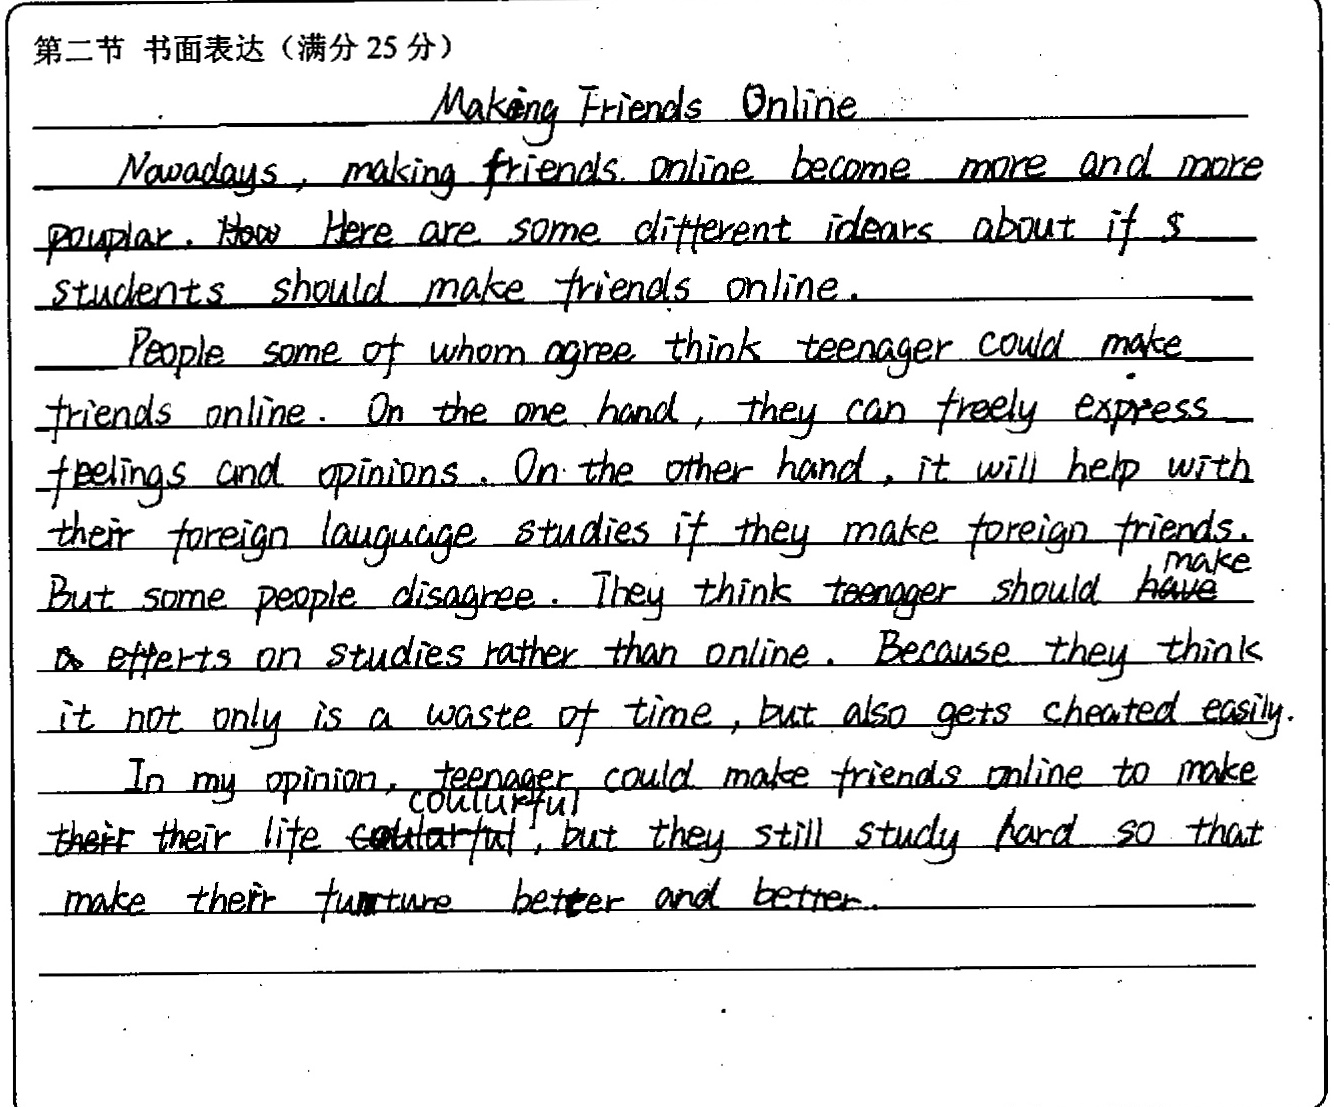 第二节 书面表达（满分 25 分）
Making Friends Online
Nowadays, making friends online become more and more
pouplar. How Here are some different idears about if s
students should make friends online.
People some of whom agree think teenager could make
friends online. On the one hand, they can freely express
feelings and opinions. On the other hand, it will help with
their foreign lauguage studies if they make foreign friends.
make
But some people disagree. They think teenager should have
efferts on studies rather than online. Because they think
it not only is a waste of time, but also gets cheated easily.
In my opinion, teenager could make friends online to make
coulurful
their their life, but they still study hard so that
make their better and better.